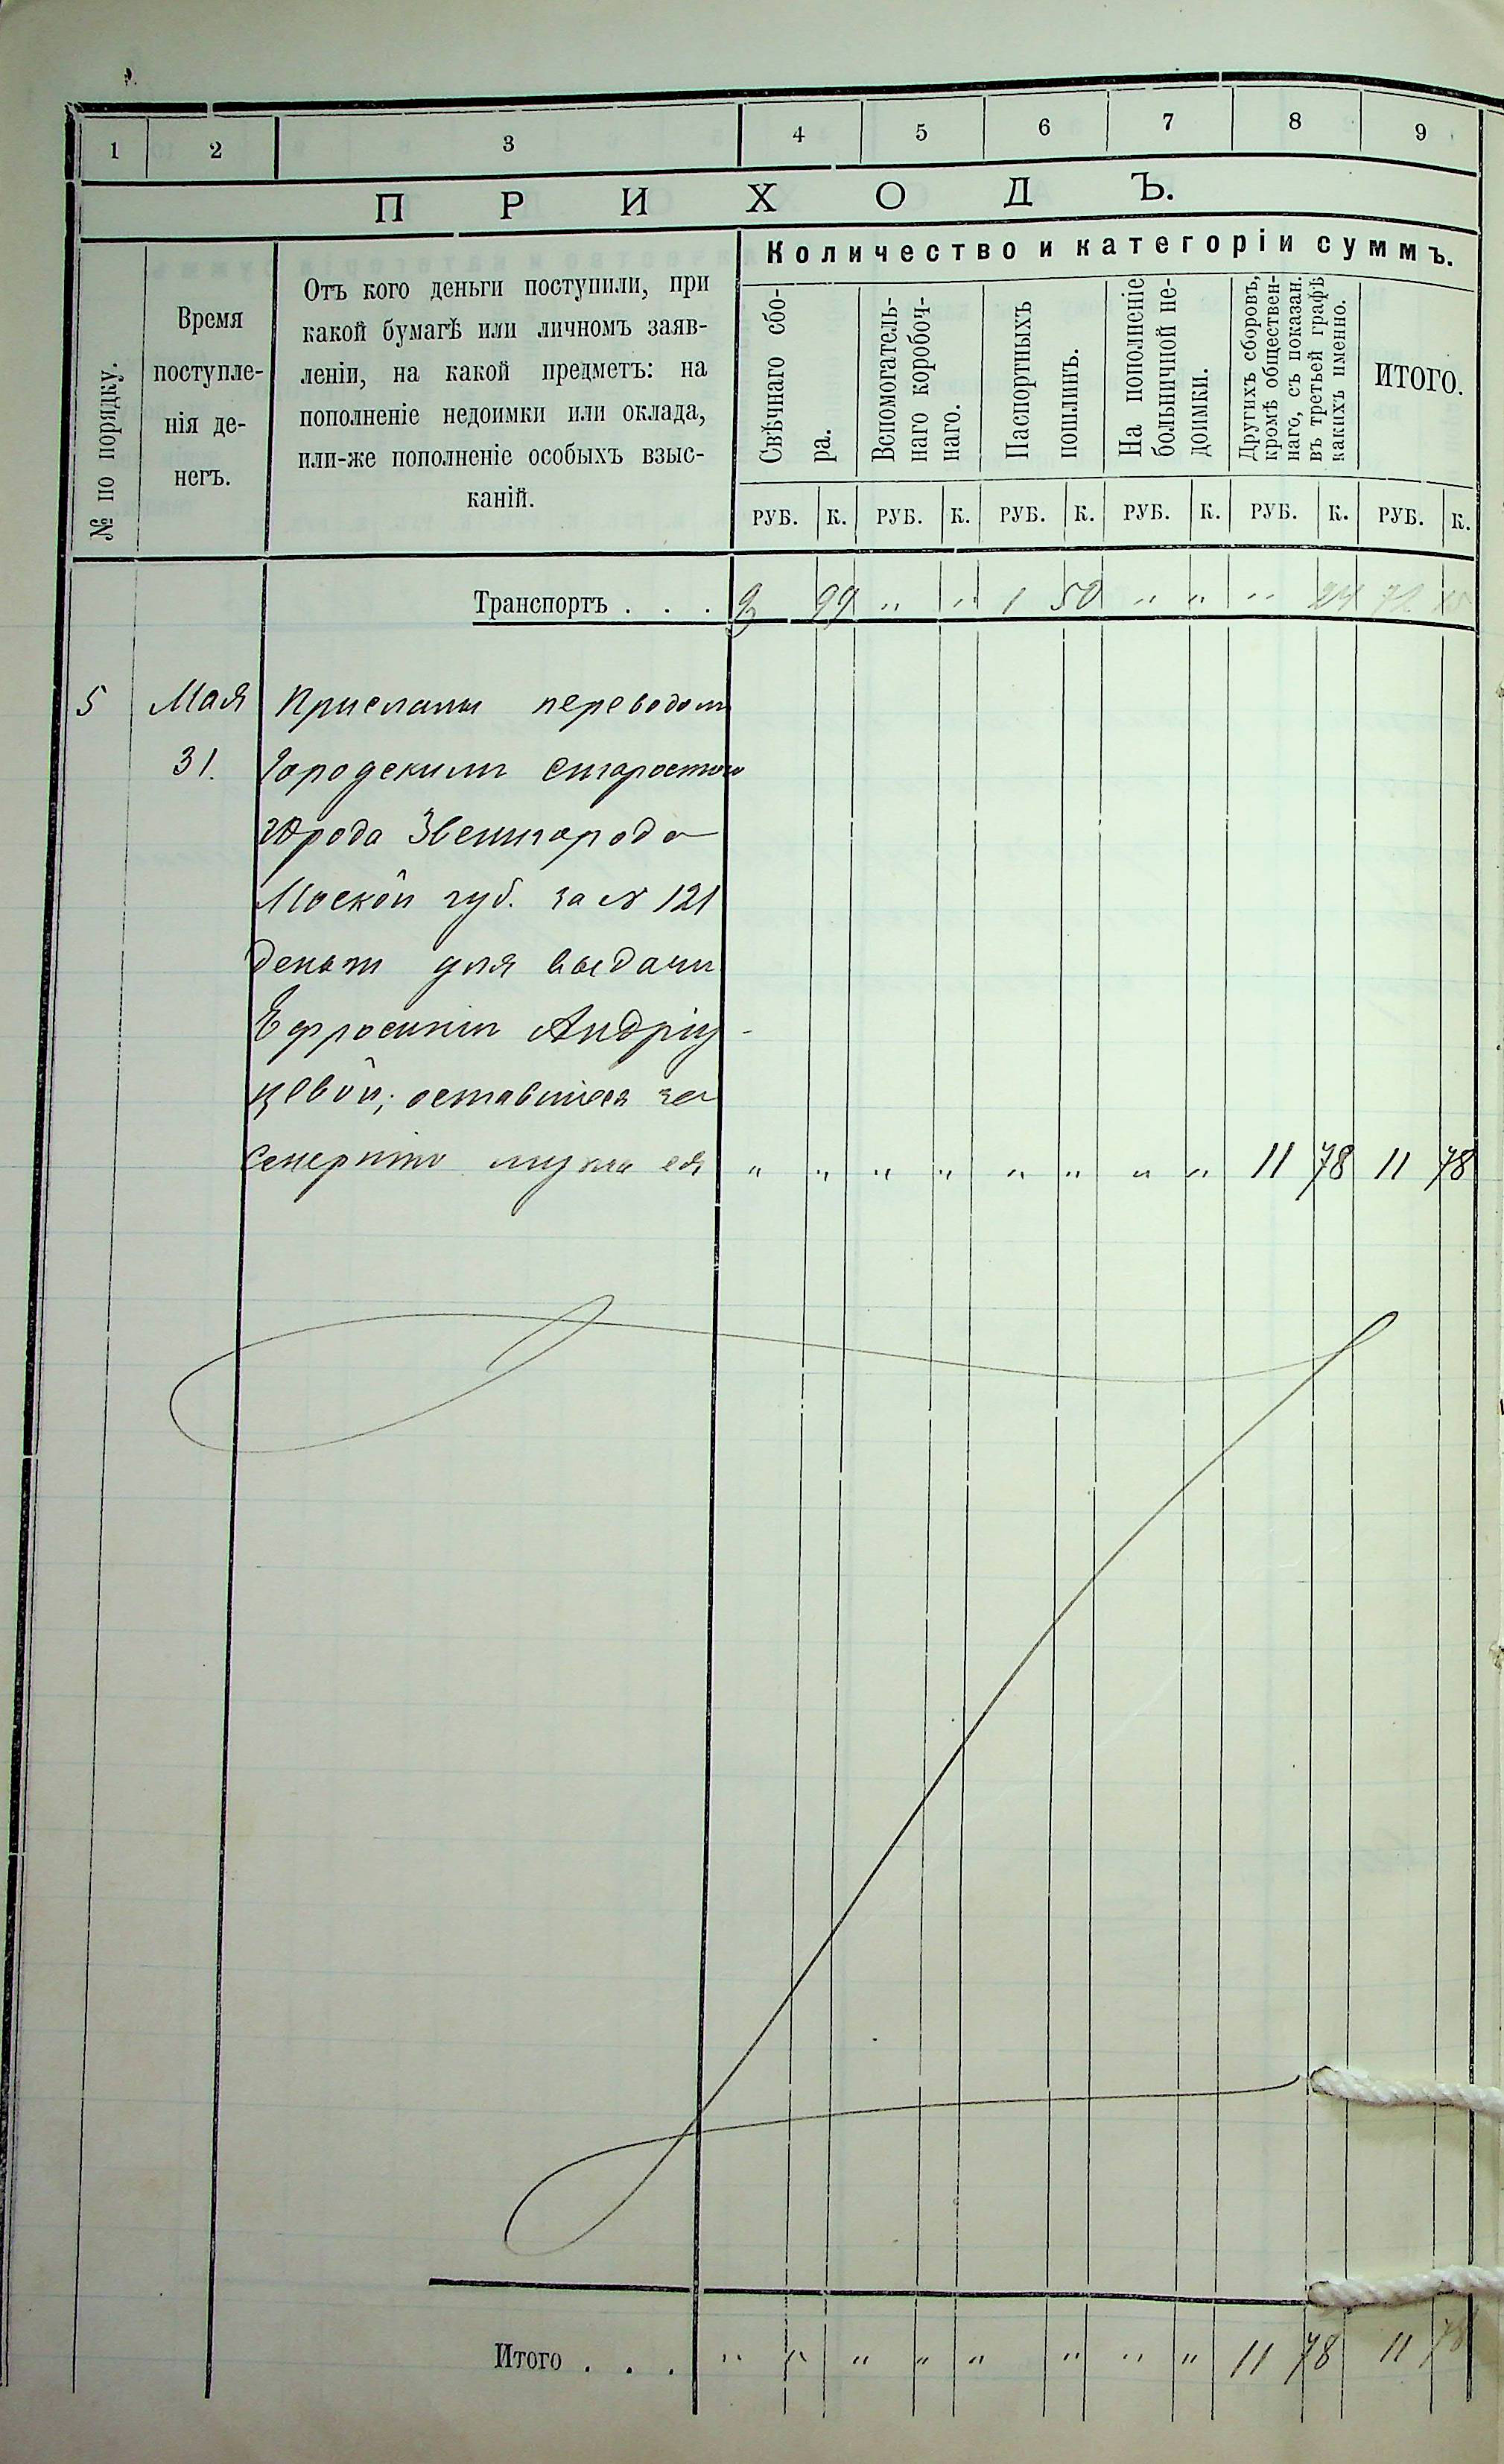 1 2 3 4 5 6 7 8 9
ПРИХОДЪ.
№ по порядку.
Время
поступле-
нія де-
негъ.
Отъ кого деньги поступили, при
какой бумагѣ или личномъ заяв-
леніи, на какой предметъ: на
пополненіе недоимки или оклада,
или-же пополненіе особыхъ взыс-
каній.
Количество и категоріи суммъ.
Свѣчнаго сбо-
ра.
Вспомогатель-
наго коробоч-
наго.
Паспортныхъ
пошлинъ.
На пополненіе
больничной не-
доимки.
Другихъ сборовъ,
кромѣ обществен-
наго, съ показан.
въ третьей графѣ
какихъ именно.
ИТОГО.
РУБ. К. РУБ. К. РУБ. К. РУБ. К. РУБ. К. РУБ. К.
Транспортъ . . . " " 1 50 " " "
5 Мая Присланы переводом
31. Городским старостою
города Звенигорода
Моской губ. за № 121
денег для выдачи
Ефросиніи Андріу-
цевой; оставшіеся за
смертію мужа ея " " " " " " " " 11 78 11 78
Итого . . . " " " " " " " " 11 78 11 78